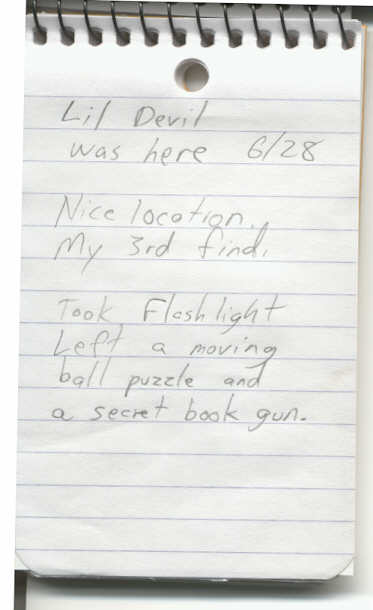 Lil Devil
was here 6/28
Nice location.
My 3rd find.
Took Flashlight
Left a moving
ball puzzle and
a secret book gun.